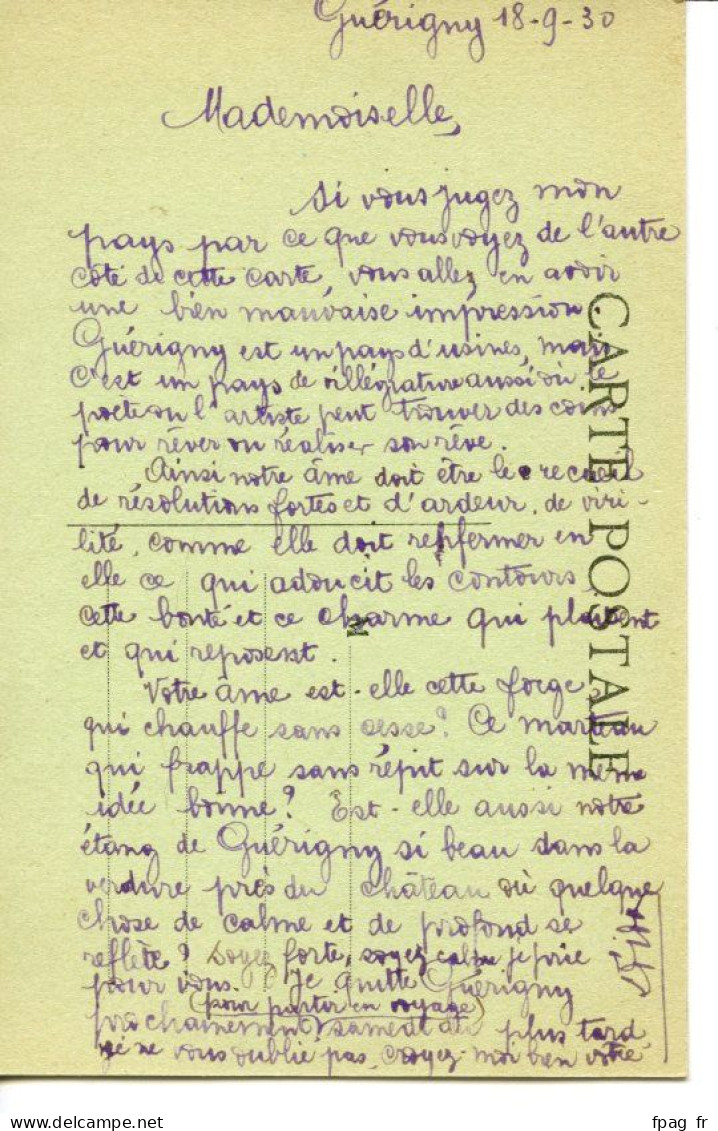 Guérigny 18-9-30
Mademoiselle,
Si vous jugez mon
pays par ce que vous voyez de l'autre
côté de cette carte, vous allez en avoir
une bien mauvaise impression.
Guérigny est un pays d'usines, mais
c'est un pays de villégiature aussi où le
poète ou l'artiste peut trouver des coins
pour rêver ou réaliser son rêve.
Ainsi notre âme doit être le recueil
de résolutions fortes et d'ardeur, de viri-
lité, comme elle doit renfermer en
elle ce qui adoucit les contours,
cette bonté et ce charme qui plaisent
et qui reposent.
Votre âme est-elle cette forge
qui chauffe sans cesse? Ce marteau
qui frappe sans répit sur la même
idée bonne? Est-elle aussi notre
étang de Guérigny si beau dans la
verdure près du château où quelque
chose de calme et de profond se
reflète? Soyez forte, soyez calme je prie
pour vous. Je quitte Guérigny
(pour partir en voyage)
prochainement, samedi au plus tard
je ne vous oublie pas, croyez-moi bien votre
CARTE POSTALE
fpag fr